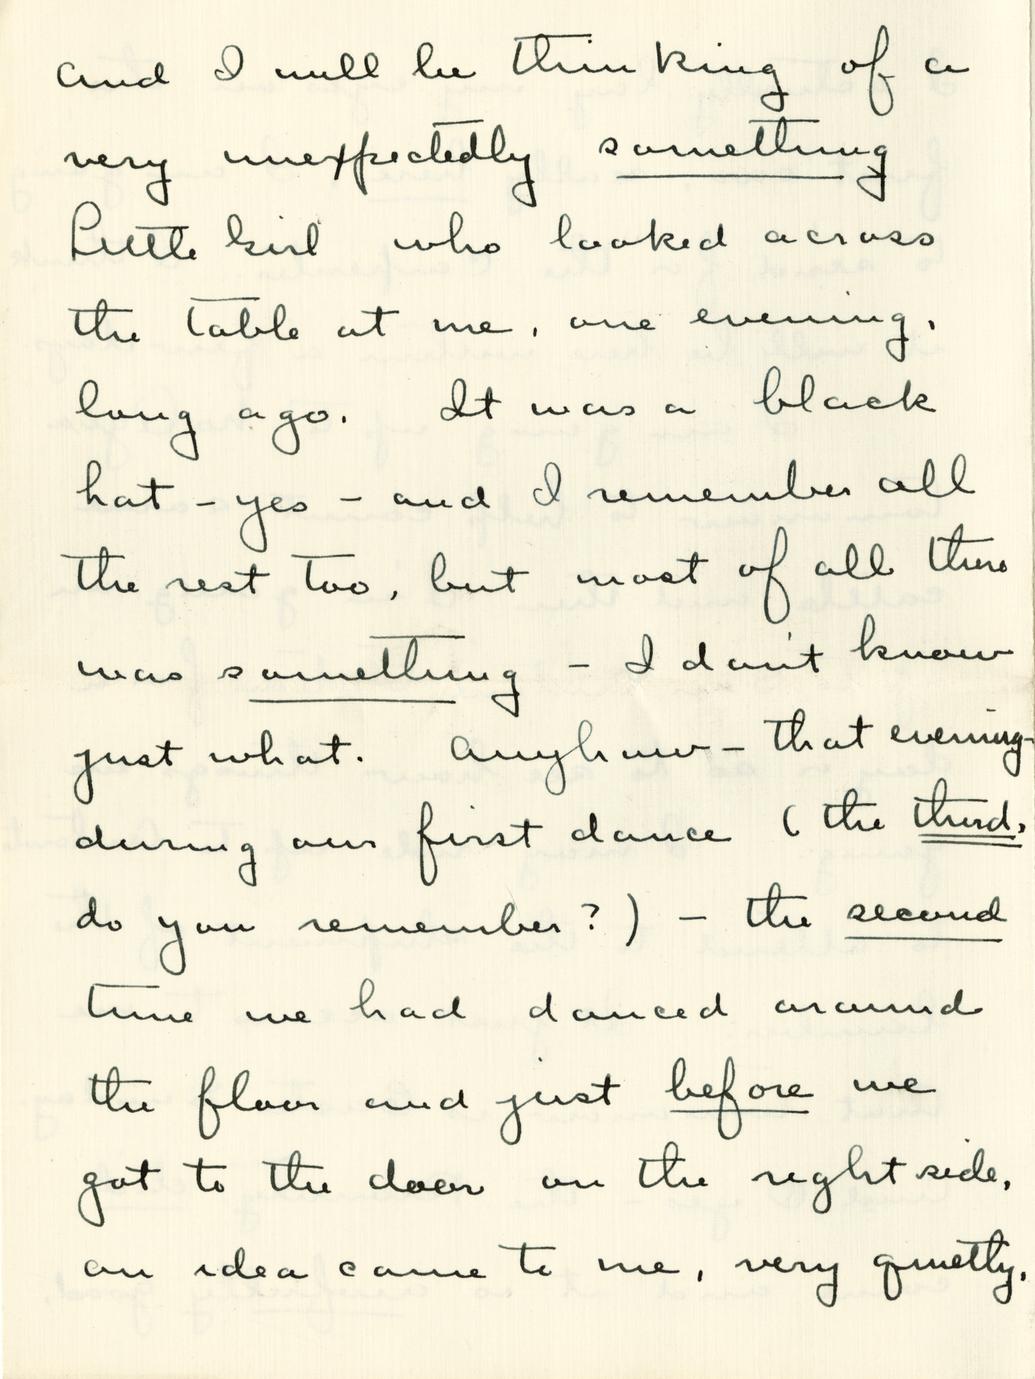 and I will be thinking of a
very unexpectedly something
Little Girl who looked across
the table at me, one evening,
long ago. It was a black
hat - yes - and I remember all
the rest too, but most of all there
was something - I don't know
just what. Anyhow - that evening -
during our first dance (the third,
do you remember?) - the second
time we had danced around
the floor and just before we
got to the door on the right side,
an idea came to me, very quietly,